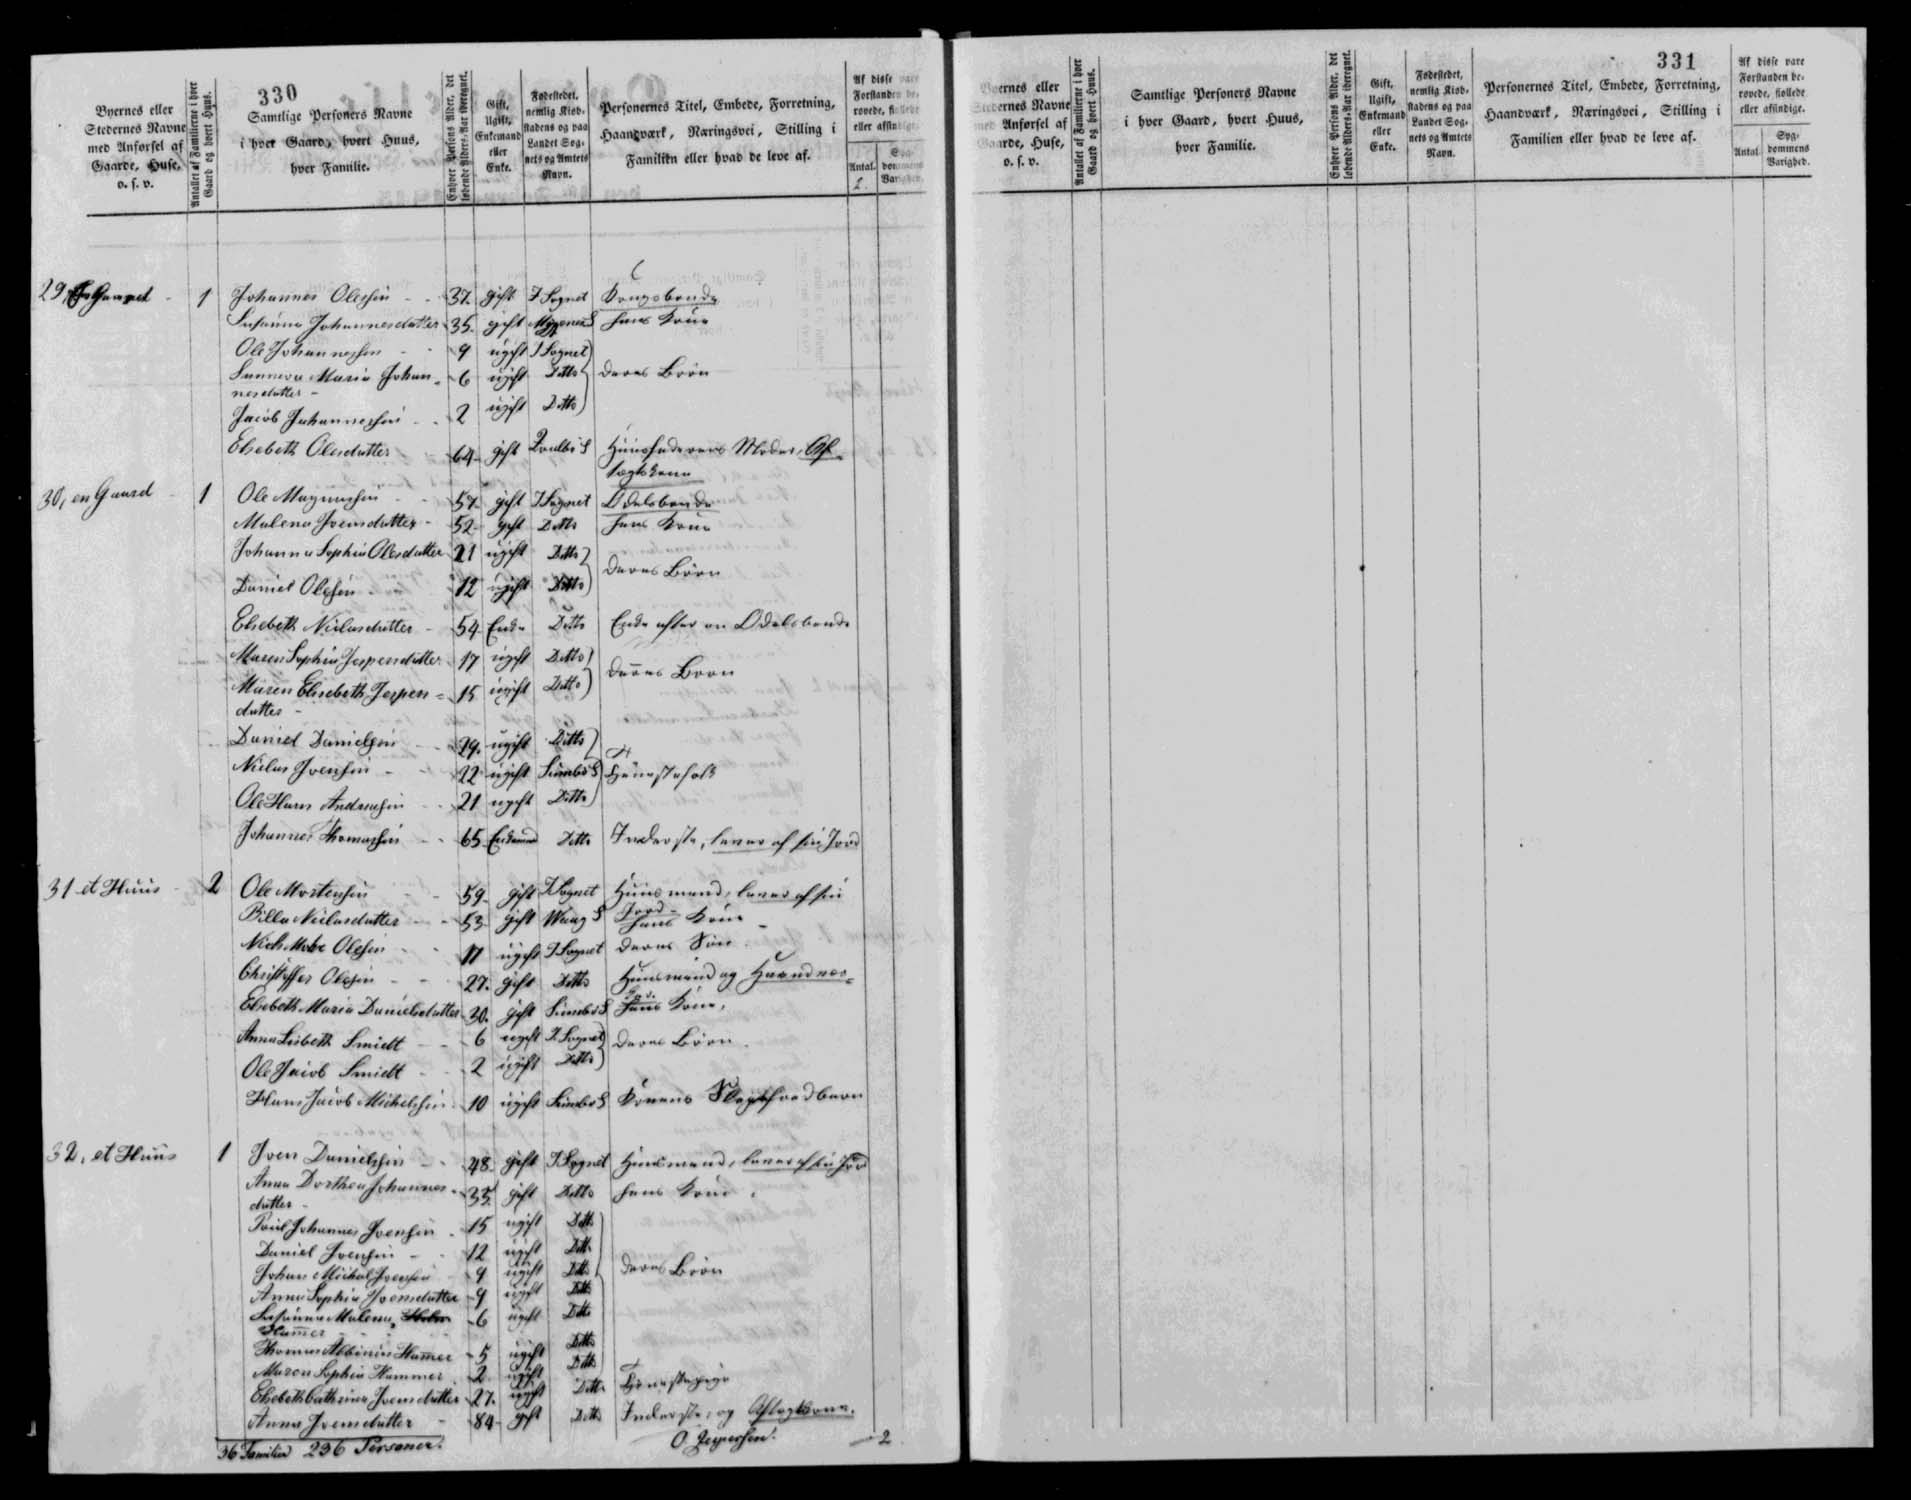 330
Byernes eller Stedernes Navne med Anførsel af Gaarde, Huse, o. s. v.
Antallet af Familierne i hver Gaard og hvert Huus.
Samtlige Personers Navne i hver Gaard, hvert Huus, hver Familie.
Enhver Persons Alder, det løbende Alders-Aar iberegnet.
Gift, Ugift, Enkemand eller Enke.
Fødestedet, nemlig Kiøbstadens og paa Landet Sognets og Amtets Navn.
Personernes Titel, Embede, Forretning, Haandværk, Næringsvei, Stilling i Familien eller hvad de leve af.
Af disse vare Forstanden berovede, fiollede eller afsindige.
Antal. Sygdommens Varighed.
2.
29, Gaard - 1 Johannes Olessen - 37. gift I Sognet Kongsbonde
Susanna Johannesdatter 35. gift Myggenes S hans Kone
Ole Johannessen - 9 ugift I Sognet
Sunneva Maria Johan- 6 ugift Ditto deres Børn
nesdatter -
Jacob Johannessen - 2 ugift Ditto
Elsebeth Olesdatter 64 gift S Huusfaderens Moder, Af-
tægtskone
30, en Gaard - 1 Ole Magnussen - 57. gift I Sognet Odelsbonde
Malena Joensdatter - 52 gift Ditto hans Kone
Johanna Sophia Olesdatter 21 ugift Ditto
deres Børn
Daniel Olessen - 12 ugift Ditto
Elsebeth Niclasdatter - 54 Enke Ditto Enke efter en Odelsbonde
Maren Sophia Jespersdatter 17 ugift Ditto
deres Børn
Maren Elisebeth Jespers= 15 ugift Ditto
datter -
Daniel Danielsen - 29. ugift Ditto
Niclas Joensen - 22 ugift Sumbø S Tjenestefolk
Ole Hans Andreasen - 21 ugift Ditto
Johannes Thomassen - 65 Enkemand Ditto Inderste, lever af sin Jord
31 et Huus - 2 Ole Mortensen - 59. gift I Sognet Huusmand, lever af sin
Jord -
Billa Niclasdatter - 53 gift Waag S hans Kone
Olessen - 17 ugift I Sognet deres Søn
Christoffer Olessen - 27. gift Ditto Huusmand og Haandvær-
ker.
Elsebeth Maria Danielsdatter 30. gift Sumbø S hans Kone,
Anna Lisbeth Smidt - 6 ugift I Sognet deres Børn
Ole Jacob Smidt - 2 ugift Ditto
Hans Jacob Michelsen - 10 ugift Sumbø S Konens Slegfredbarn
32, et Huus 1 Joen Danielsen - 48. gift I Sognet Huusmand, lever af sin Jord
Anna Dorthea Johannes- 35 gift Ditto hans Kone
datter -
Poul Johannes Joensen - 15 ugift Ditto
Daniel Joensen - 12 ugift Ditto
Johan Michal Joensen 9 ugift Ditto deres Børn
Anna Sophia Joensdatter 9 ugift Ditto
Susanna Malena 6 ugift Ditto
Hammer
Thomas Albinus Hammer 5 ugift Ditto
Maren Sophia Hammer 2 ugift Ditto
Elsebeth Cathrina Joensdatter 27. ugift Ditto Tjenestepige
Anna Joensdatter - 84 gift Ditto Inderste, og Aftægtskone.
36 Familier 236 Personer. O. Jespersen. 2
331
Byernes eller Stedernes Navne med Anførsel af Gaarde, Huse, o. s. v.
Antallet af Familierne i hver Gaard og hvert Huus.
Samtlige Personers Navne i hver Gaard, hvert Huus, hver Familie.
Enhver Persons Alder, det løbende Alders-Aar iberegnet.
Gift, Ugift, Enkemand eller Enke.
Fødestedet, nemlig Kiøbstadens og paa Landet Sognets og Amtets Navn.
Personernes Titel, Embede, Forretning, Haandværk, Næringsvei, Stilling i Familien eller hvad de leve af.
Af disse vare Forstanden berovede, fiollede eller afsindige.
Antal. Sygdommens Varighed.